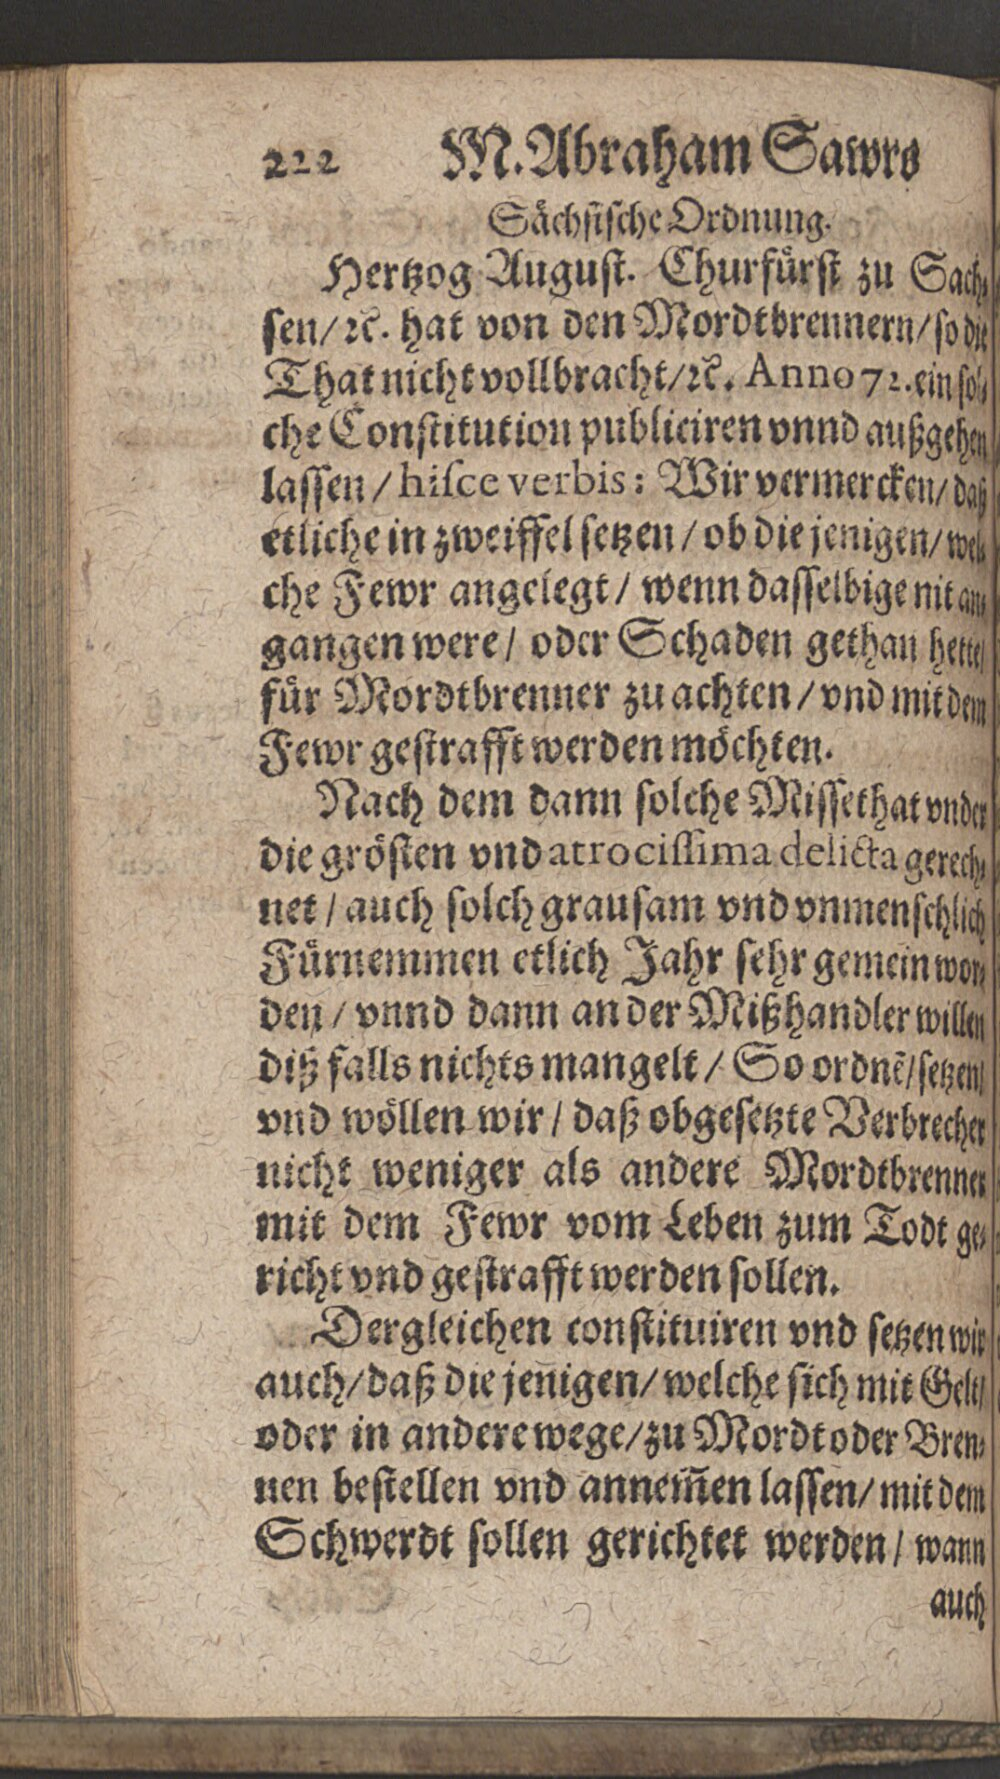 222 M. Abraham Sawrs
Sächsische Ordnung.
Hertzog August. Churfürst zu Sach-
sen/ ꝛc. hat von den Mordtbrennern/ so die
That nicht vollbracht/ ꝛc. Anno 72. ein sol-
che Constitution publiciren vnnd außgehen
lassen/ hisce verbis: Wir vermercken/ daß
etliche in zweiffel setzen/ ob die jenigen/ wel-
che Fewr angelegt/ wenn dasselbige nit an-
gangen were/ oder Schaden gethan hette/
für Mordtbrenner zu achten/ vnd mit dem
Fewr gestrafft werden möchten.
Nach dem dann solche Missethat vnder
die grösten vnd atrocissima delicta gerech-
net/ auch solch grausam vnd vnmenschlich
Fürnemmen etlich Jahr sehr gemein wor-
den/ vnnd dann an der Mißhandler willen
diß falls nichts mangelt/ So ordnē/ setzen/
vnd wöllen wir/ daß obgesetzte Verbrecher
nicht weniger als andere Mordtbrenner
mit dem Fewr vom Leben zum Todt ge-
richt vnd gestrafft werden sollen.
Dergleichen constituiren vnd setzen wir
auch/ daß die jenigen/ welche sich mit Gelt/
oder in andere wege/ zu Mordt oder Bren-
nen bestellen vnd annem̄en lassen/ mit dem
Schwerdt sollen gerichtet werden/ wann
auch